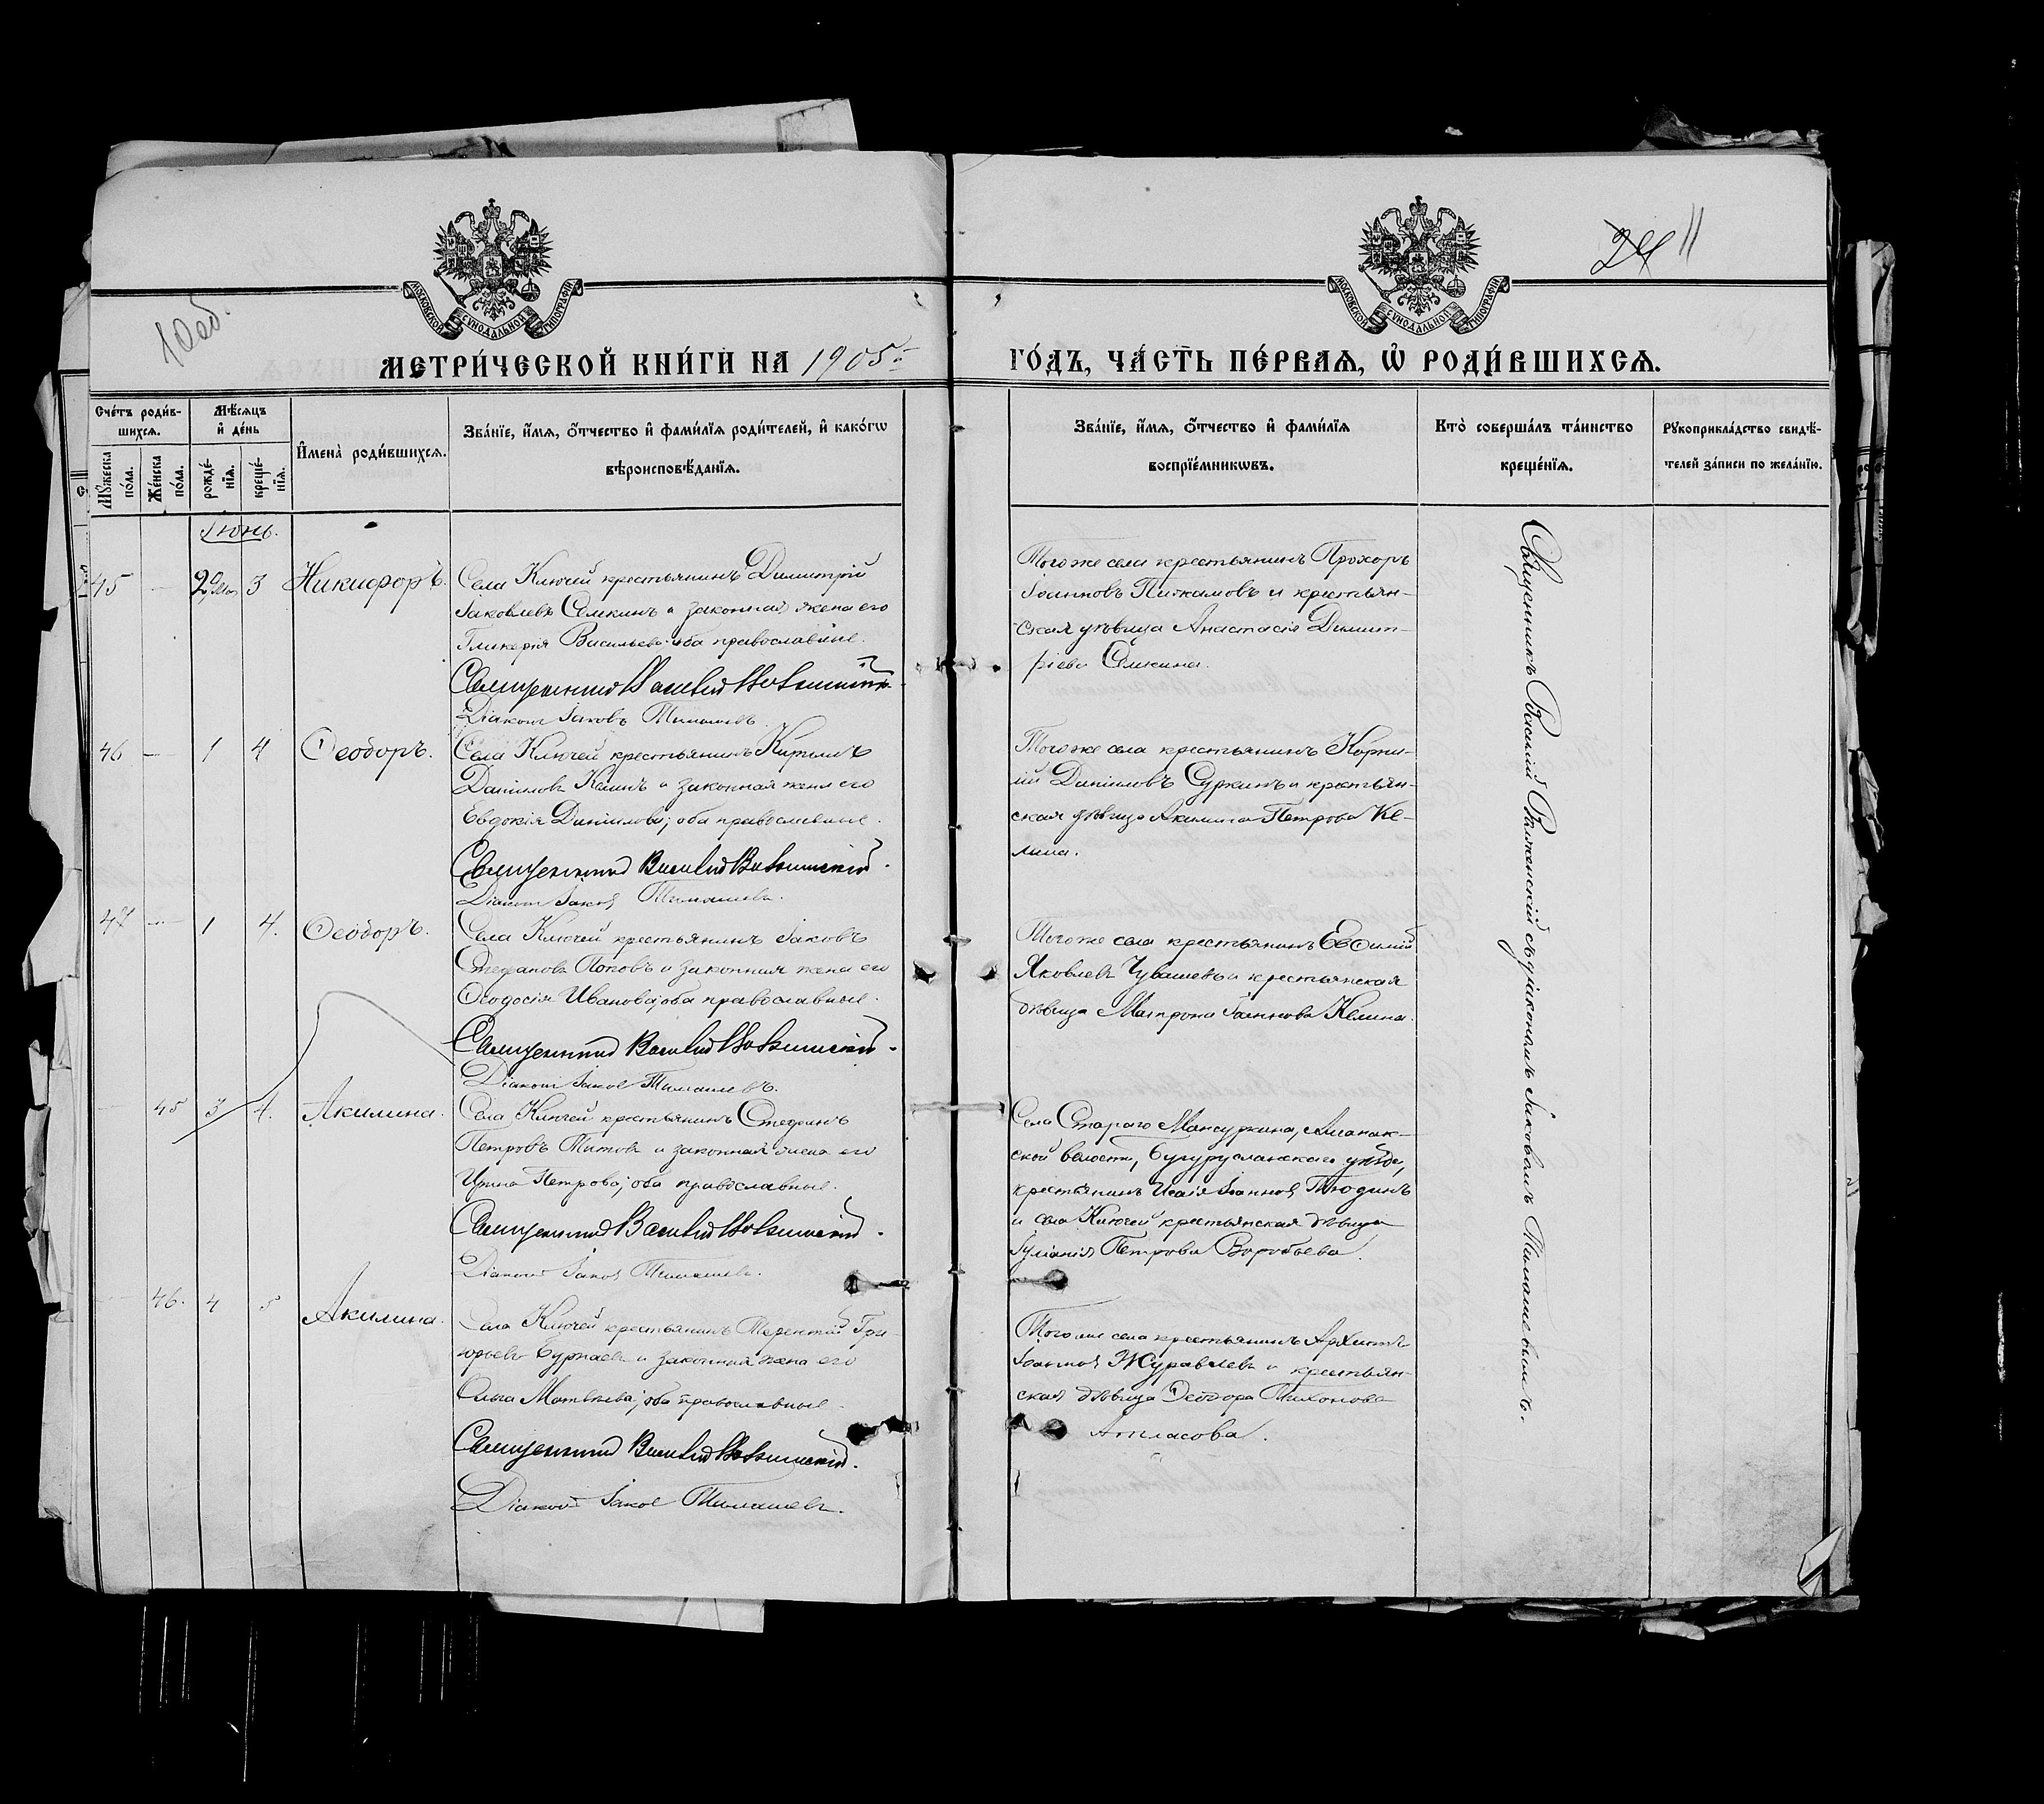 24 11
10об.
МОСКОВСКОЙ СѴНОДАЛЬНОЙ ТИПОГРАФІИ
МОСКОВСКОЙ СѴНОДАЛЬНОЙ ТИПОГРАФІИ
МЕТРИ́ЧЕСКОЙ КНИ́ГИ НА 1905
ГО́ДЪ, ЧА́СТЬ ПЕ́РВАѦ, Ѡ РОДИ́ВШИХСѦ.
Сче́тъ роди́в-
шихсѧ.
Мꙋ́жеска по́ла.
Же́нска по́ла.
Мѣ́сѧцъ и҆ де́нь
рожде́-нїѧ.
креще́-нїѧ.
И҆мена̀ роди́вшихсѧ.
Зва́нїе, и҆́мѧ, ѻ҆́тчество и҆ фами́лїѧ роди́телей, и҆ како́гѡ
вѣроисповѣ́данїѧ.
Зва́нїе, и҆́мѧ, ѻ҆́тчество и҆ фами́лїѧ
воспрїе́мникѡвъ.
Кто̀ соверша́лъ та́инство
креще́нїѧ.
Рꙋкоприкла́дство свидѣ́-
телей за́писи по жела́нїю.
Іюнь.
45 — 29 3 Никифоръ.
Села Ключей крестьянинъ Димитрій
Іаковлевъ Семкинъ и законная жена его
Гликерія Васильева: оба православные.
Священникъ Василій
Діаконъ Іаковъ Тимашевъ.
Тогоже села крестьянинъ Прохоръ
Іоанновъ и крестьян-
ская дѣвица Анастасія Димит-
ріева Семкина.
46 — 1 4 Ѳеодоръ.
Села Ключей крестьянинъ Кириллъ
Даниловъ Келинъ и законная жена его
Евдокія Данилова; оба православные.
Священникъ Василій
Діаконъ Іаковъ Тимашевъ.
Тогоже села крестьянинъ Корни-
лій Даниловъ Суркинъ и крестьян-
ская дѣвица Акилина Петрова Ке-
лина.
47 — 1 4. Ѳеодоръ.
Села Ключей крестьянинъ Іаковъ
Стефановъ Поповъ и законная жена его
Ѳеодосія Иванова; оба православные.
Священникъ Василій
Діаконъ Іаковъ Тимашевъ.
Тогоже села крестьянинъ Евѳимій
Яковлевъ Чувашевъ и крестьянская
дѣвица Матрона Іоаннова Келина.
45 3 4. Акилина.
Села Ключей крестьянинъ Стефанъ
Петровъ Титовъ и законная жена его
Ирина Петрова; оба православные.
Священникъ Василій
Діаконъ Іаковъ Тимашевъ.
Села Стараго Мансуркина, Аманак-
ской волости, Бугурусланскаго уѣзда,
крестьянинъ Исаія Іоанновъ Тюдинъ
и села Ключей крестьянская дѣвица
Іуліанія Петрова Воробьева.
46. 4 5 Акилина.
Села Ключей крестьянинъ Терентій Гри-
горьевъ Бурнаевъ и законная жена его
Ольга Матвѣева; оба православные.
Священникъ Василій
Діаконъ Іаковъ Тимашевъ.
Того же села крестьянинъ Архипъ
Іоанновъ Журавлевъ и крестьян-
ская дѣвица Ѳеодора Тихонова
Атласова.
Священникъ Василій съ діакономъ Іаковомъ Тимашевымъ.